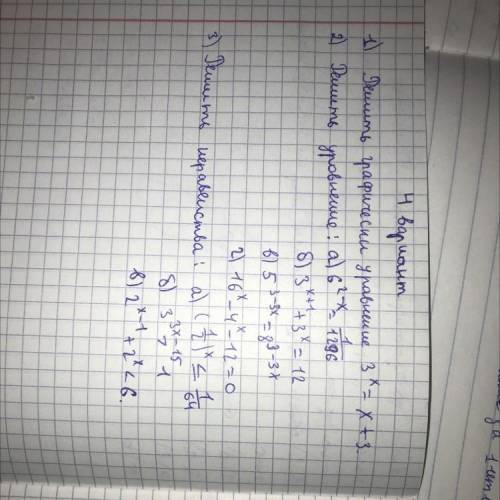 4 вариант
1) Решить графически уравнение 3^x = x + 3.
2) Решить уровнение: а) 6^{2-x} = \frac{1}{1296}
б) 3^{x+1} + 3^x = 12
в) 5^{3-3x} = 8^{3-3x}
г) 16^x - 4^x - 12 = 0
3) Решить неравенства: а) (\frac{1}{2})^x ≤ \frac{1}{64}
б) 3^{3x-15} > 1
в) 2^{x-1} + 2^x < 6.